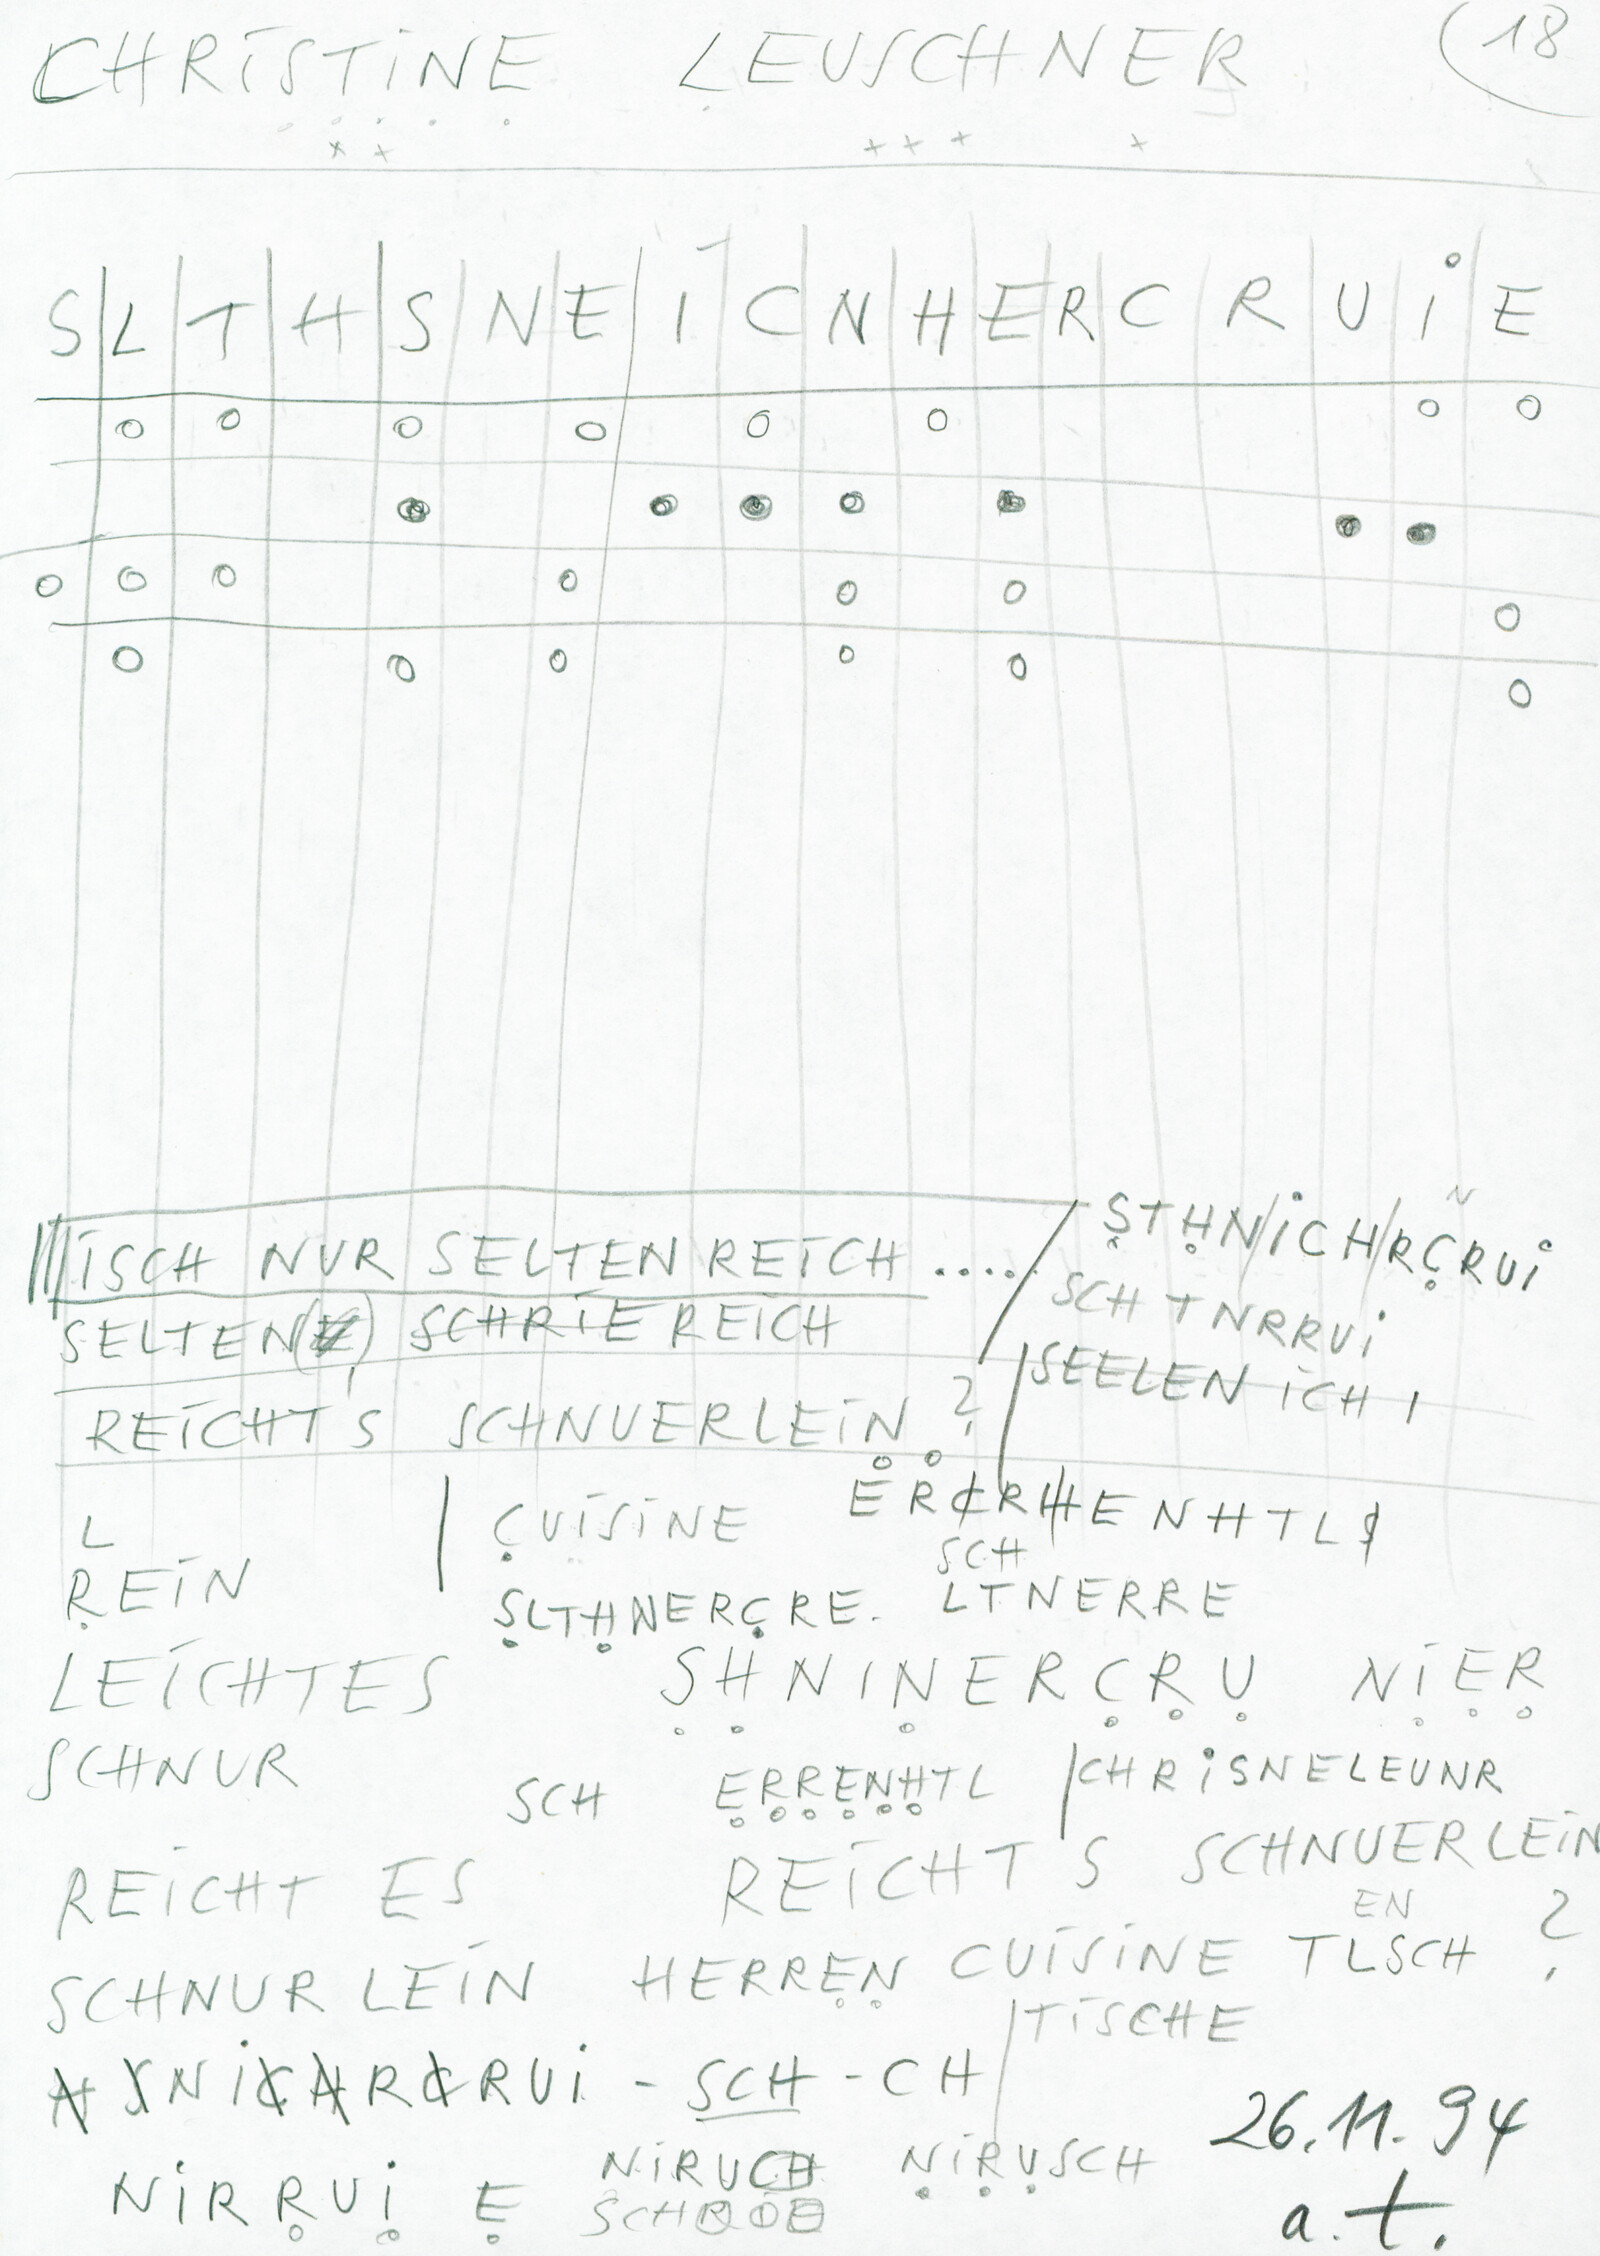 CHRISTINE LEUSCHNER (18
S L T H S N E I C N H E R C R U I E
ISCH NUR SELTEN REICH .....
STHN/ICH/RCRUI
SELTEN SCHRIE REICH
SCH TNRRUI
SEELEN ICH I
REICHT'S SCHNUERLEIN ?
ERCRHENHTLS
L
REIN
CUISINE
SCH
SLTHNERCRE. LTNERRE
LEICHTES
SHNINERCRU NIER
SCHNUR
SCH ERRENHTL
CHRISNELEUNR
REICHT ES
REICHT S SCHNUERLEIN
EN
SCHNUR LEIN HERREN CUISINE TLSCH ?
TISCHE
HSNICHRCRUI - SCH - CH
26.11.94
NIRUCH NIRUSCH
NIRRUI E
a.t.